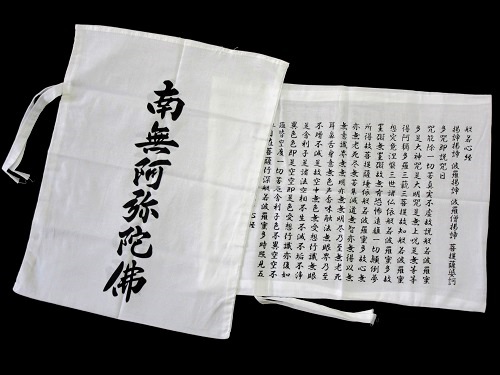 般若心経
掲諦掲諦 波羅掲諦 波羅僧掲諦 菩提薩婆訶
多咒即説咒曰
咒能除一切苦真実不虚故説般若波羅蜜
多是大神咒是大明咒是無上咒是無等等
得阿耨多羅三藐三菩提故知般若波羅蜜
想究竟涅槃三世諸仏依般若波羅蜜多故
罣礙無罣礙故無有恐怖遠離一切顛倒夢
所得故菩提薩埵依般若波羅蜜多故心無
亦無老死尽無苦集滅道無智亦無得以無
無意識界無無明亦無無明尽乃至無老死
耳鼻舌身意無色声香味触法無眼界乃至
不増不減是故空中無色無受想行識無眼
是舍利子是諸法空相不生不滅不垢不浄
異色色即是空空即是色受想行識亦復如
皆空度一切苦厄舍利子色不異空空不
菩薩行深般若波羅蜜多時照見五
心経
南無阿弥陀佛